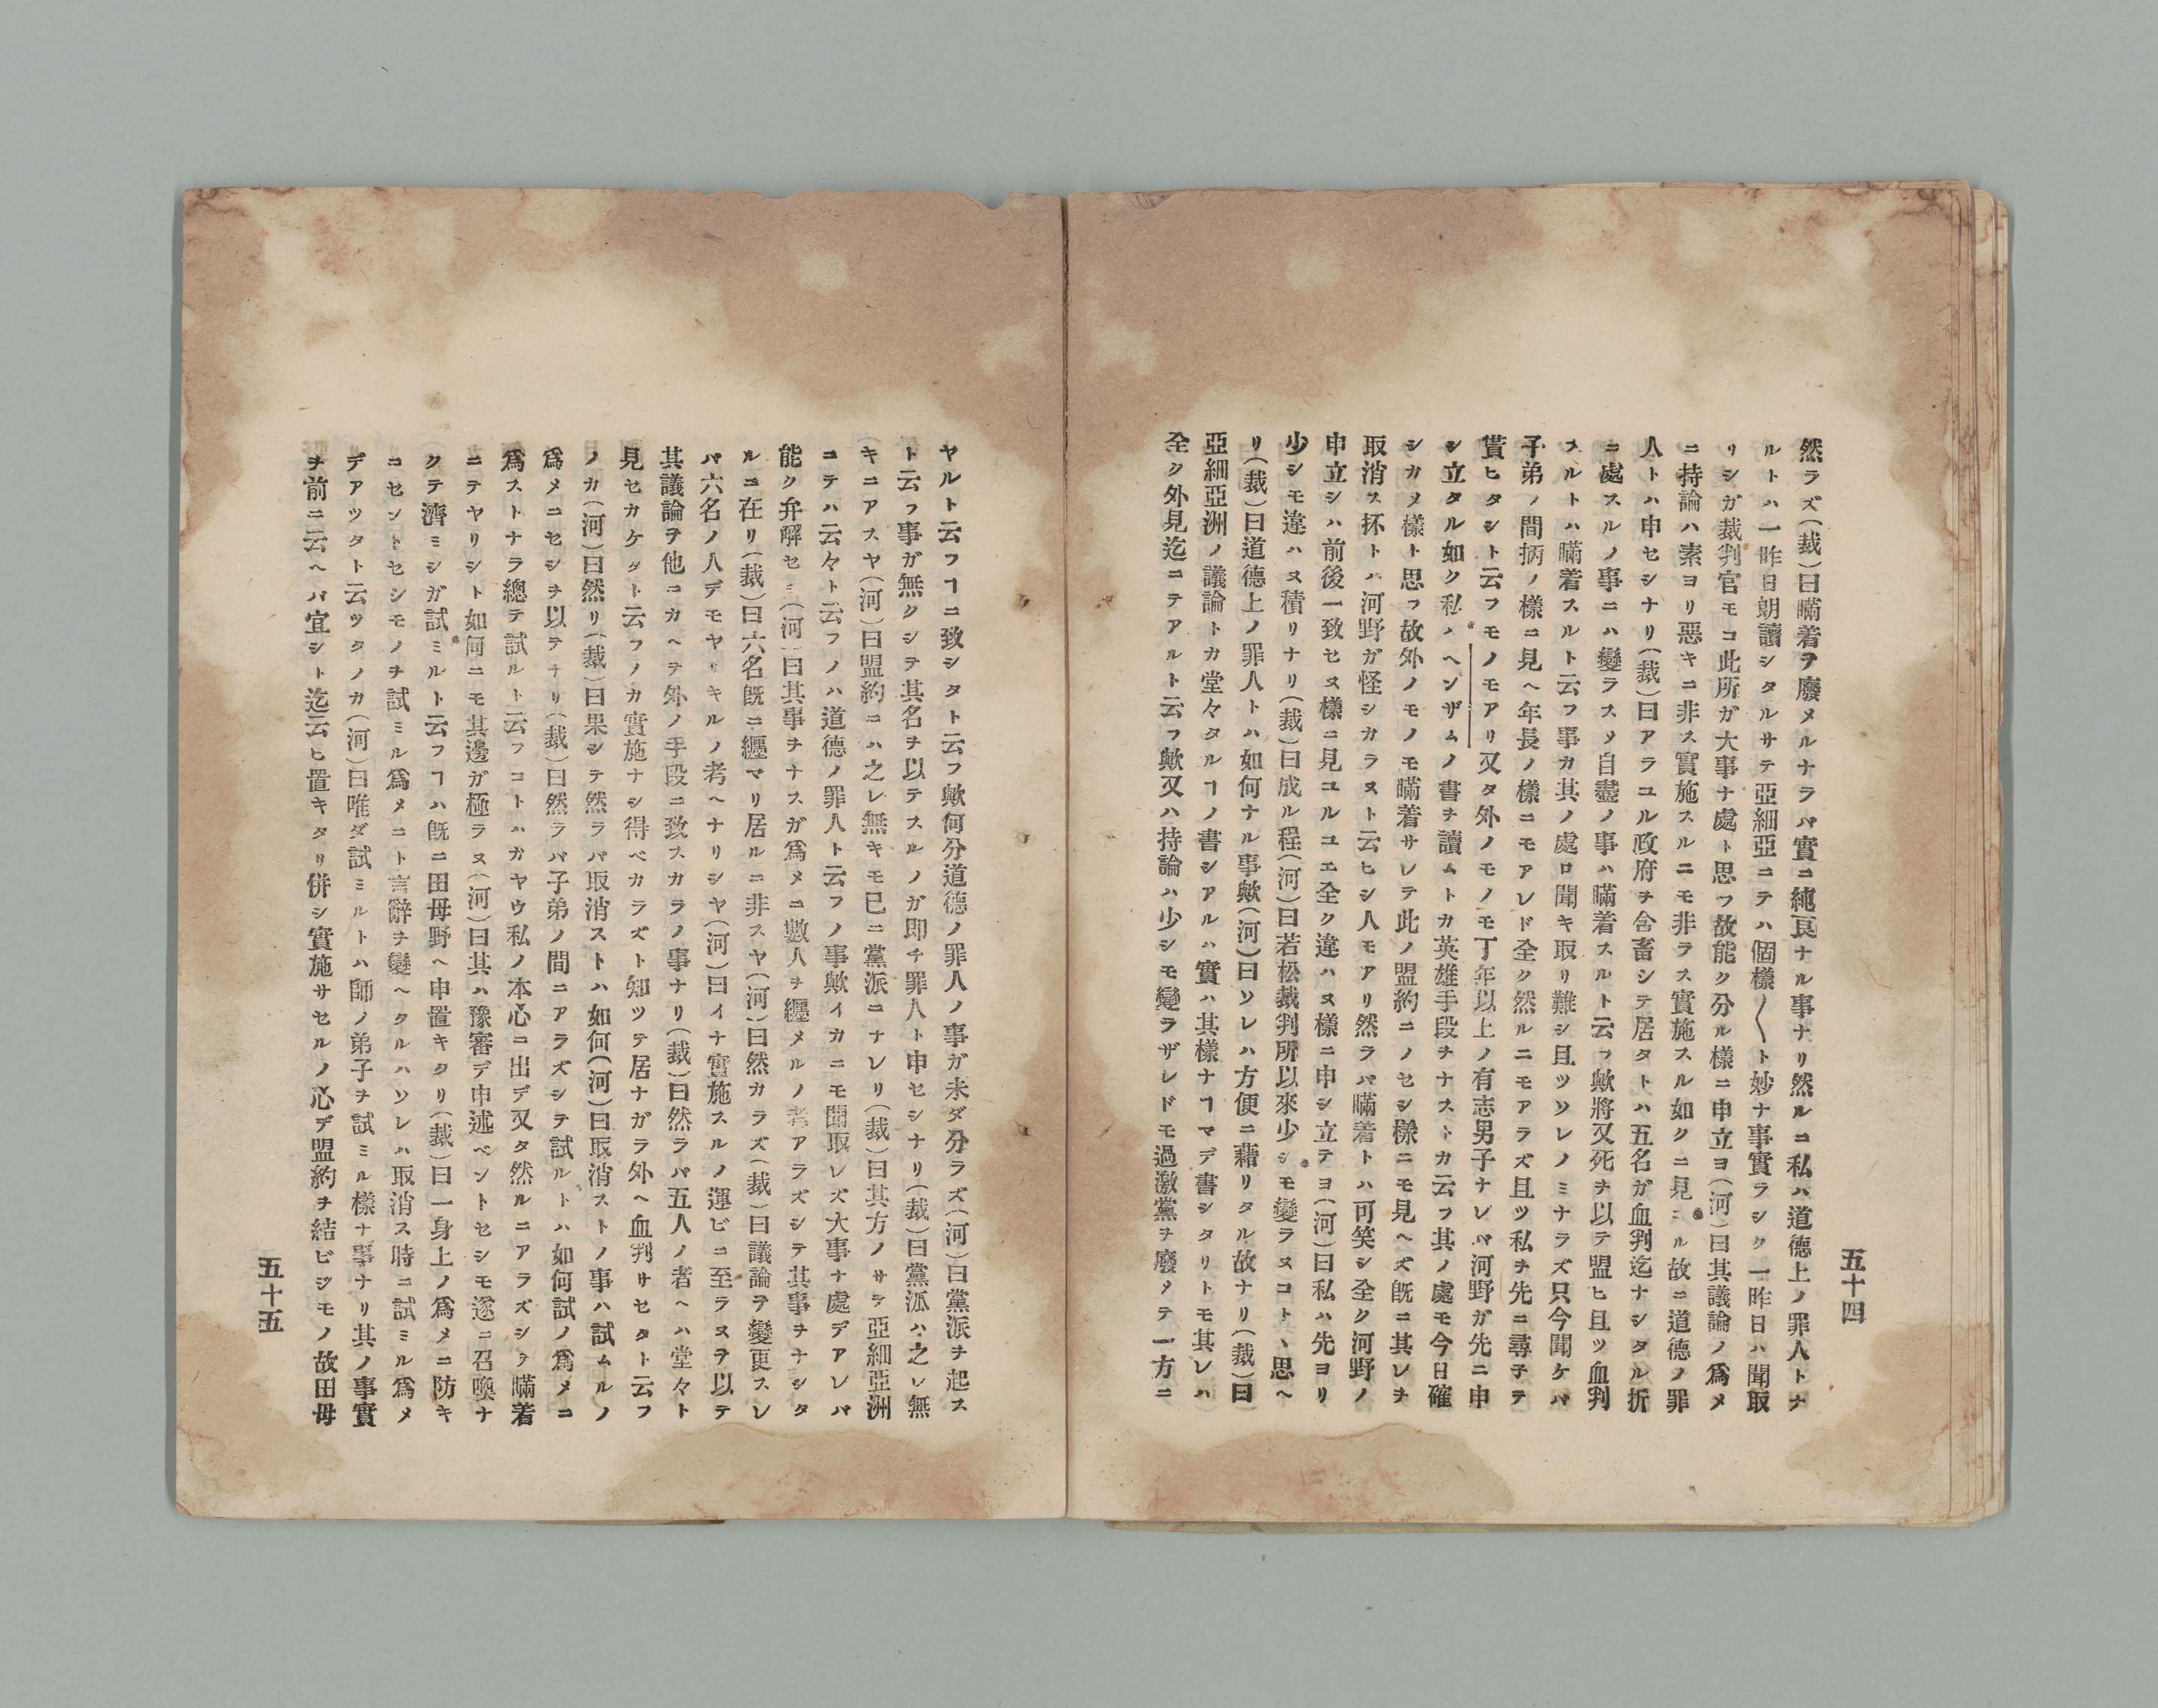 五十四
然ラズ(裁)曰瞞着ヲ廢メルナラバ實ニ純良ナル事ナリ然ルニ私ハ道德上ノ罪人トナ
ルトハ一昨日朗讀シタルサテ亞細亞ニテハ個樣〱ト妙ナ事實ラシク一昨日ハ聞取
リシガ裁判官モコ此所ガ大事ナ處ト思フ故能ク分ル樣ニ申立ヨ(河)曰其議論ノ爲メ
ニ持論ハ素ヨリ惡キニ非ス實施スルニモ非ラス實施スル如クニ見ユル故ニ道德ノ罪
人トハ申セシナリ(裁)曰アラユル政府ヲ舍畜シテ居タトハ五名ガ血判迄ナシタル折
ニ處スルノ事ニハ變ラスメ自盡ノ事ハ瞞着スルト云フ歟將又死ヲ以テ盟ヒ且ツ血判
スルトハ瞞着スルト云フ事カ其ノ處ロ聞キ取リ難シ且ツソレノミナラズ只今聞ケバ
子弟ノ間抦ノ樣ニ見ヘ年長ノ樣ニモアレド全ク然ルニモアラズ且ツ私ヲ先ニ尋子テ
貰ヒタシト云フモノモアリ又タ外ノモノモ丁年以上ノ有志男子ナレバ河野ガ先ニ申
シ立タル如ク私ハヘンザムノ書ヲ讀ムトカ英雄手段ヲナストカ云フ其ノ處モ今日確
シカメ樣ト思フ故外ノモノモ瞞着サレテ此ノ盟約ニノセシ樣ニモ見ヘズ既ニ其レヲ
取消ス抔トハ河野ガ怪シカラヌト云ヒシ人モアリ然ラバ瞞着トハ可笑シ全ク河野ノ
申立シハ前後一致セヌ樣ニ見ユルユエ全ク違ハヌ樣ニ申シ立テヨ(河)曰私ハ先ヨリ
少シモ違ハヌ積リナリ(裁)曰成ル程(河)曰若松裁判所以來少シモ變ラヌコトヽ思ヘ
リ(裁)曰道德上ノ罪人トハ如何ナル事歟(河)曰ソレハ方便ニ藉リタル故ナリ(裁)曰
亞細亞洲ノ議論トカ堂々タルヿノ書シアルハ實ハ其樣ナヿマデ書シタリトモ其レハ
全ク外見迄ニテアルト云フ歟又ハ持論ハ少シモ變ラザレドモ過激黨ヲ廢メテ一方ニ
ヤルト云フヿニ致シタト云フ歟何分道德ノ罪人ノ事ガ未ダ分ラズ(河)曰黨派ヲ起ス
ト云フ事ガ無クシテ其名ヲ以テスルノガ即チ罪人ト申セシナリ(裁)曰黨派ハ之レ無
キニアスヤ(河)曰盟約ニハ之レ無キモ已ニ黨派ニナレリ(裁)曰其方ノサヲ亞細亞洲
ニテハ云々ト云フノハ道德ノ罪人ト云フノ事歟イカニモ聞取レズ大事ナ處デアレバ
能ク弁解セヨ(河)曰其事ヲナスガ爲メニ數人ヲ纒メルノ考アラズシテ其事ヲナシタ
ルニ在リ(裁)曰六名既ニ纒マリ居ルニ非スヤ(河)曰然カラズ(裁)曰議論ヲ變更スレ
バ六名ノ人デモヤリキルノ考ヘナリシヤ(河)曰イナ實施スルノ運ビニ至ラヌヲ以テ
其議論ヲ他ニカヘヲ外ノ手段ニ致スカラノ事ナリ(裁)曰然ラバ五人ノ者ヘハ堂々ト
見セカケタト云フノカ實施ナシ得ベカラズト知ツテ居ナガラ外ヘ血判サセタト云フ
ノカ(河)曰然リ(裁)曰果シテ然ラバ取消ストハ如何(河)曰取消ストノ事ハ試ムルノ
爲メニセシヲ以テナリ(裁)曰然ラバ子弟ノ間ニアラズシテ試ルトハ如何試ノ爲メニ
爲ストナラ總テ試ルト云フコトハガヤウ私ノ本心ニ出デ又タ然ルニアラズシテ瞞着
ニテヤリシト如何ニモ其邊ガ極ラヌ(河)曰其ハ豫審デ申述ベントセシモ遂ニ召喚ナ
クテ濟ミシガ試ミルト云フヿハ既ニ田母野ヘ申置キタリ(裁)曰一身上ノ爲メニ防キ
コセントセシモノヲ試ミル爲メニト言辭ヲ變ヘタルハソレハ取消ス時ニ試ミル爲メ
デアツタト云ツタノカ(河)曰唯ダ試ミルトハ師ノ弟子ヲ試ミル樣ナ事ナリ其ノ事實
ヲ前ニ云ヘバ宜シト迄云ヒ置キタリ併シ實施サセルノ心デ盟約ヲ結ビシモノ故田母
五十五